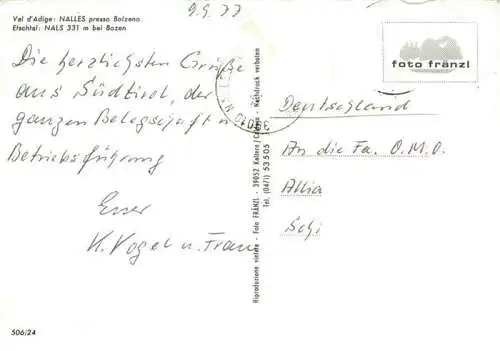 Val d'Adige: NALLES presso Bolzano
Etschtal: NALS 331 m bei Bozen
9.9.77
foto fränzl
Die herzlichsten Grüße
aus Südtirol, der
ganzen Belegschaft u.
Betriebsführung
Esser
K. Vogel u. Frau
Deutschland
An die Fa. O.M.O.
Allia
Schi
Riproduzione vietata - Foto FRÄNZL - 39052 Kaltern / Caldaro - Nachdruck verboten
Tel. (0471) 53505
506/24